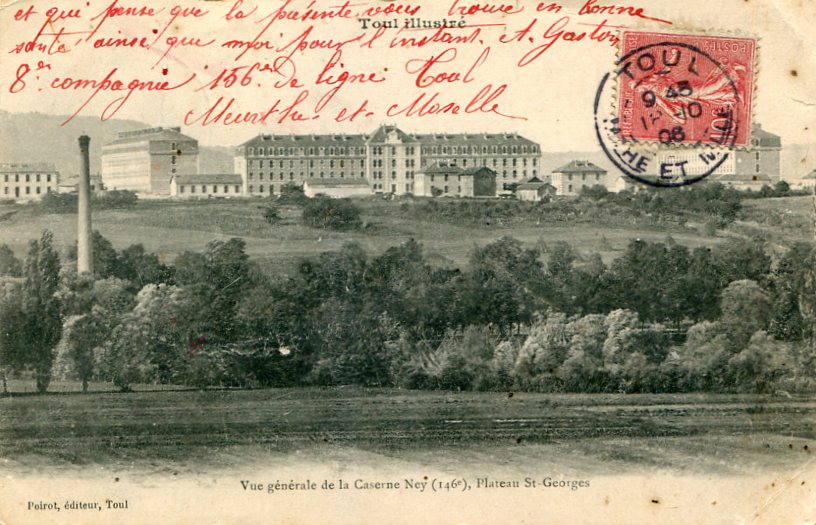 Toul illustré
et qui pense que la présente vous trouve en bonne
santé ainsi que moi pour l'instant. A. Gaston
8e compagnie 156e de ligne Toul
Meurthe-et-Moselle
TOUL
9 45
10
06
THE ET M
Vue générale de la Caserne Ney (146e), Plateau St-Georges
Poirot, éditeur, Toul